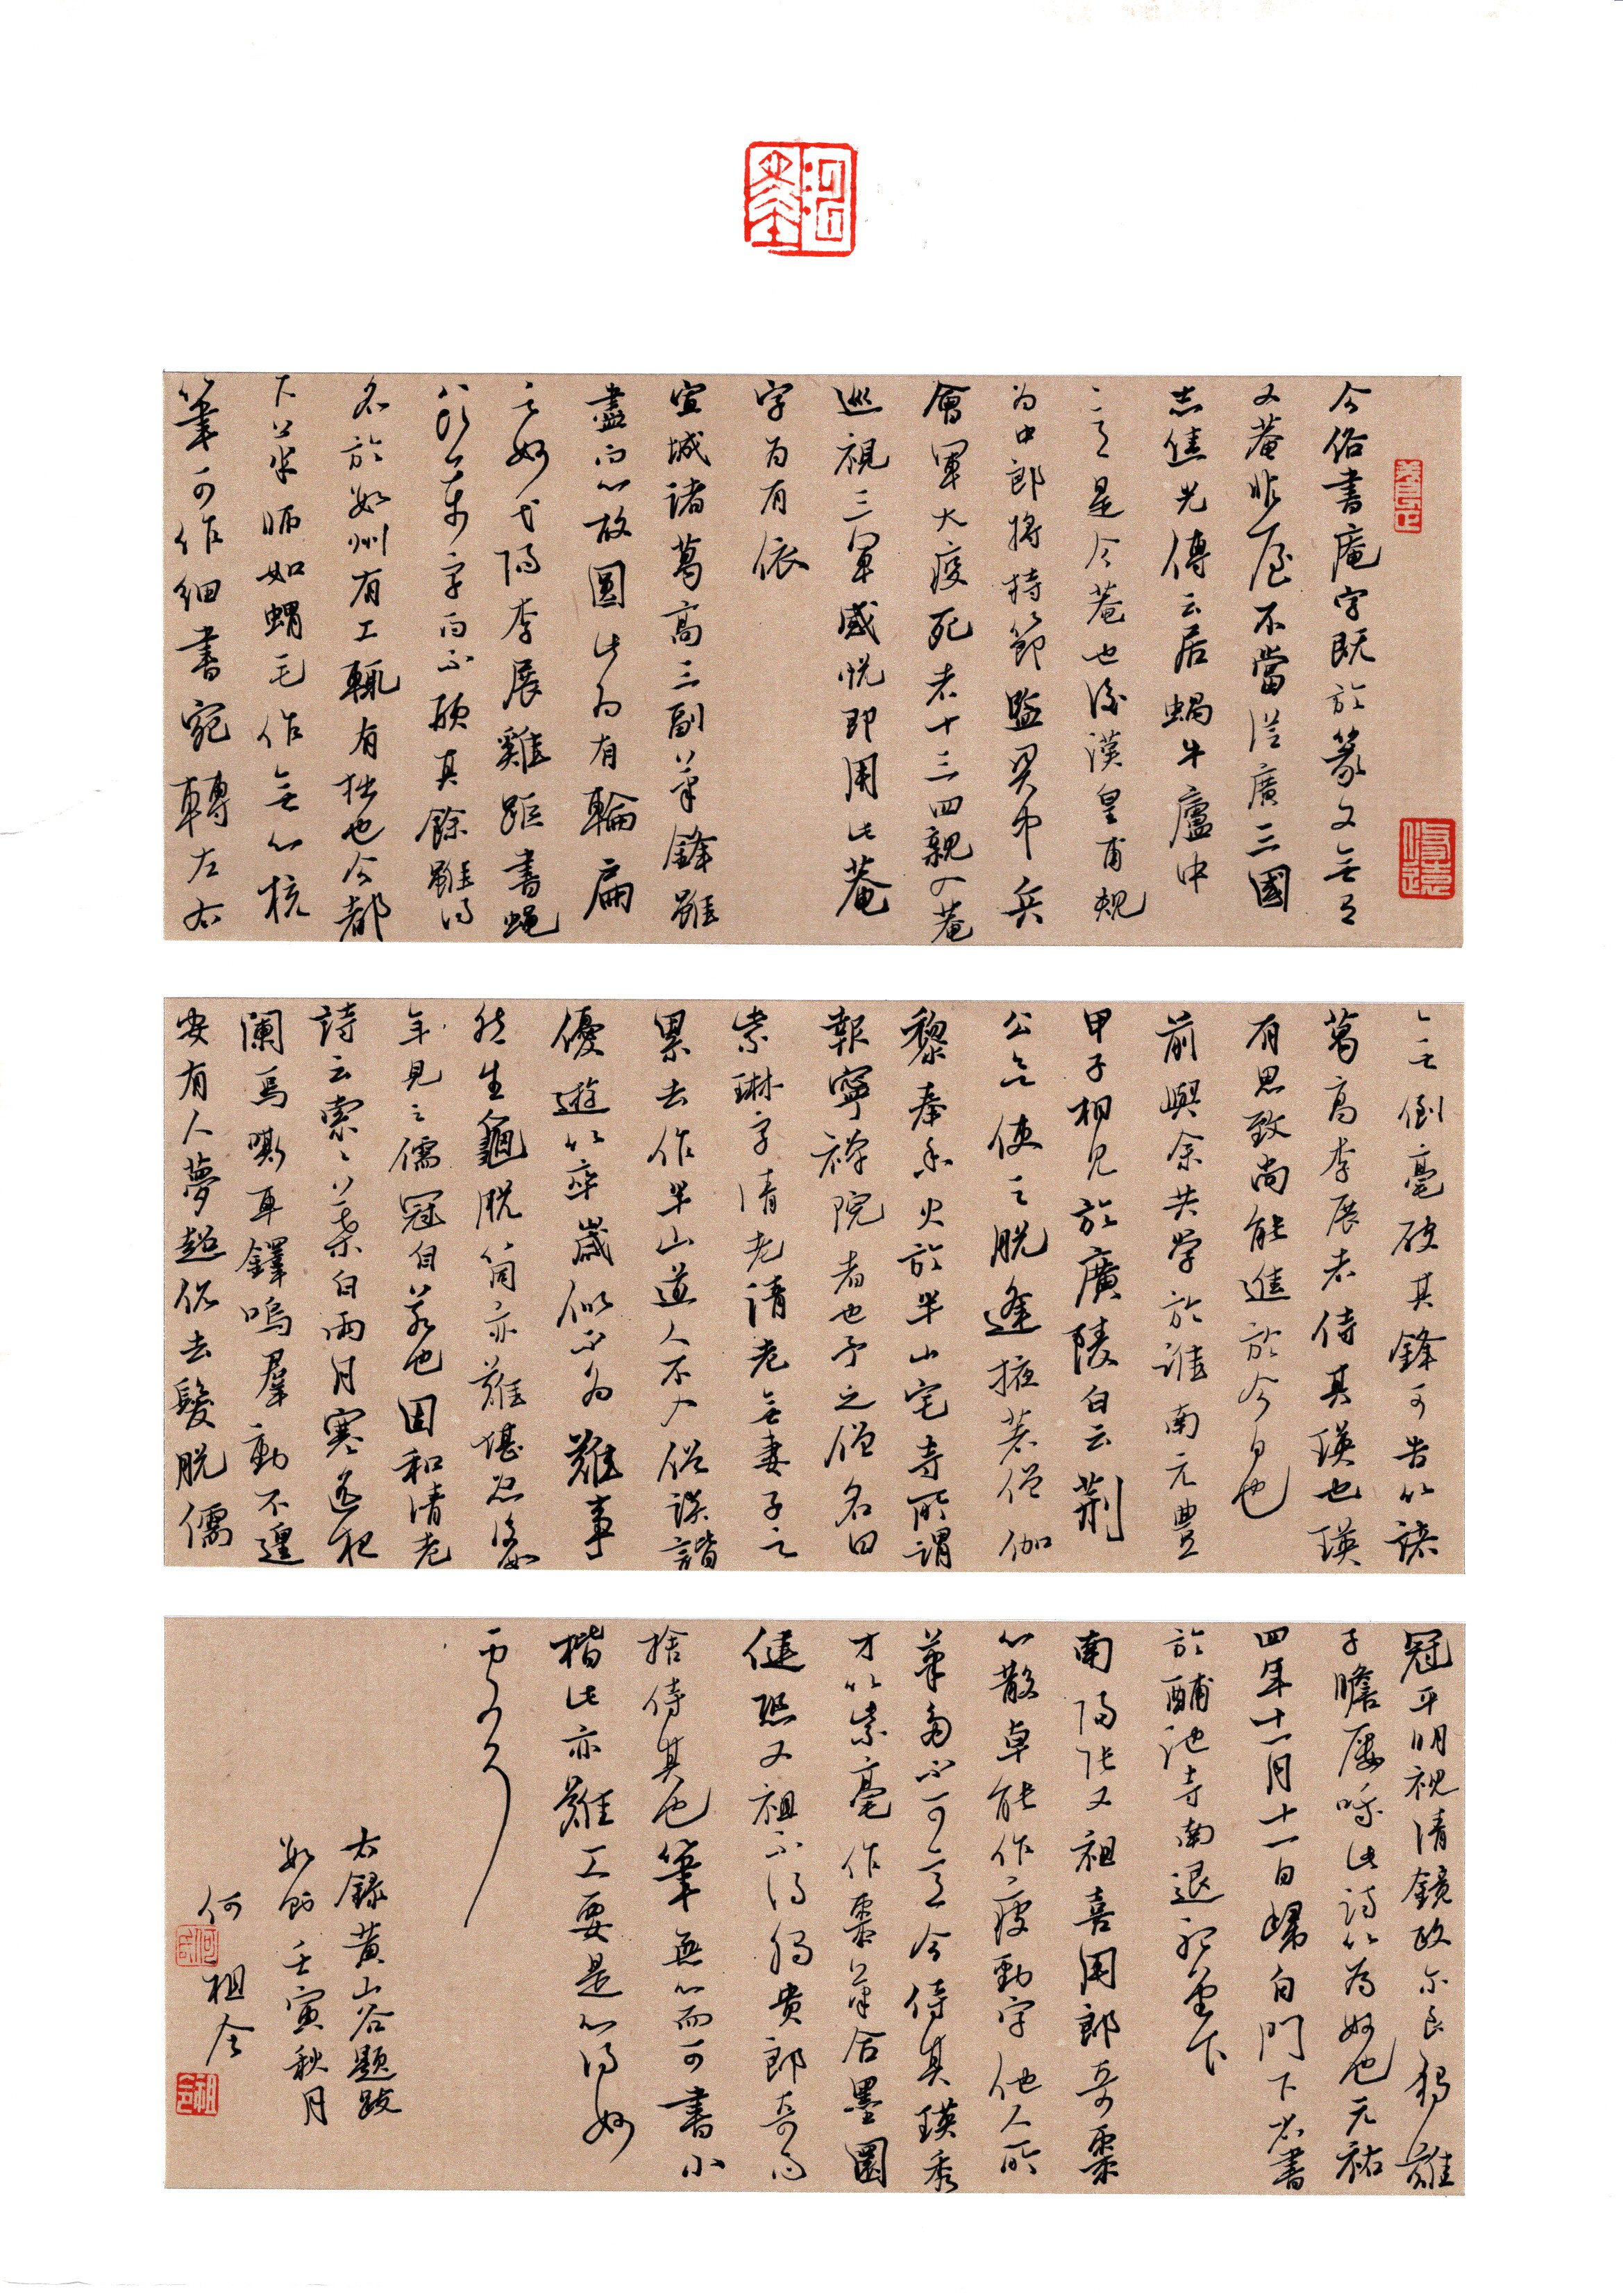 今俗書庵字既於篆文無有
又菴非屋不當從廣三國
志焦先傳云居蝸牛廬中
是今菴也後漢皇甫規
為中郎將持節監關西兵
會軍大疫死者十三四親入菴
巡視三軍感悅即用此菴
字為有依
宣城諸葛高三副筆鋒雖
盡而心故圓此為有輪扁
之妙弋陽李展雞距書蠅
頭萬字而不頓其餘雖得
名於數州有工輒有拙也今都
下筆師如蝟毛作無心棗
筆可作細書宛轉左右
無倒毫破其鋒可告以諸
葛高李展者侍其瑛也瑛
有思致尚能進於今日也
前與余共學於淮南元豐
甲子相見於廣陵自云荊
公欲使之脫逢掖著僧伽
黎奉香火於半山宅寺所謂
報寧禪院者也予之僧名曰
紫琳字清老清老無妻子之
累去作半山道人不入俗談諧
優遊以卒歲似不為難事
然生龜脫筒亦難堪忍後數
年見之儒冠自若也因和清老
詩云索索葉自雨月寒遙夜
闌馬嘶車鐸鳴群動不遑
安有人夢超俗去髮脫儒
冠平明視清鏡政爾良獨難
子瞻屢哦此詩以為妙也元祐
四年十一月十一日歸自門下省書
於酺池寺南退聽堂下
南陽張乂祖喜用郎奇棗
心散卓能作瘦勁字他人所
筆多不可意今侍其瑛秀
才以紫毫作棗筆含墨圓
健恐乂祖不得獨貴郎奇而
捨侍其也筆無心而可書小
楷此亦難工要是心得妙
處耳
右錄黃山谷題跋
數節壬寅秋月
何祖金